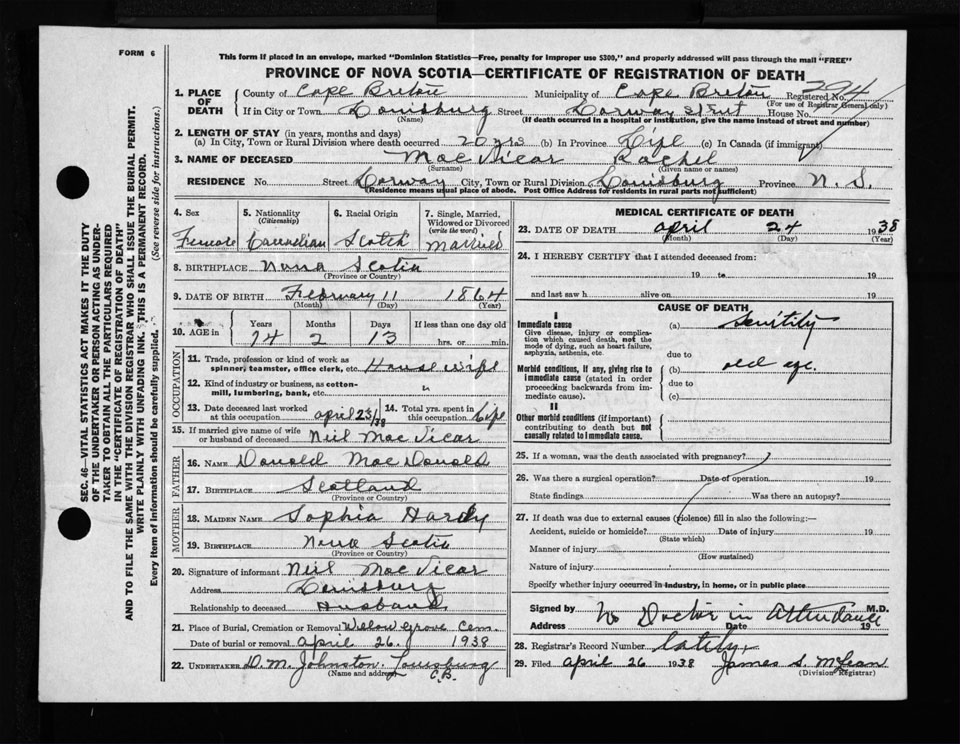 FORM 6
This form if placed in an envelope, marked "Dominion Statistics—Free, penalty for improper use $300," and properly addressed will pass through the mail "FREE"
PROVINCE OF NOVA SCOTIA—CERTIFICATE OF REGISTRATION OF DEATH
1. PLACE OF DEATH County of Cape Breton Municipality of Cape Breton Registered No.
(For use of Registrar General only)
If in City or Town Louisburg Street Lorway Street House No.
(Name) (If death occurred in a hospital or institution, give the name instead of street and number)
2. LENGTH OF STAY (in years, months and days)
(a) In City, Town or Rural Division where death occurred 20 yrs (b) In Province Life (c) In Canada (if immigrant)
3. NAME OF DECEASED MacVicar Rachel
(Surname) (Given name or names)
RESIDENCE No. Street Lorway City, Town or Rural Division Louisburg Province N. S.
(Residence means usual place of abode. Post Office Address for residents in rural parts not sufficient)
4. Sex 5. Nationality (Citizenship) 6. Racial Origin 7. Single, Married, Widowed or Divorced (write the word)
Female Canadian Scotch Married
8. BIRTHPLACE Nova Scotia
(Province or Country)
9. DATE OF BIRTH February 11 1864
(Month) (Day) (Year)
10. AGE in Years Months Days If less than one day old
74 2 13 hrs. or min.
OCCUPATION
11. Trade, profession or kind of work as spinner, teamster, office clerk, etc. House wife
12. Kind of industry or business, as cotton-mill, lumbering, bank, etc.
13. Date deceased last worked at this occupation april 23/38 14. Total yrs. spent in this occupation Life
15. If married give name of wife or husband of deceased Neil MacVicar
FATHER
16. NAME Donald MacDonald
17. BIRTHPLACE Scotland
(Province or Country)
MOTHER
18. MAIDEN NAME Sophia Hardy
19. BIRTHPLACE Nova Scotia
(Province or Country)
20. Signature of informant Neil MacVicar
Address Louisburg
Relationship to deceased Husband
21. Place of Burial, Cremation or Removal Willow Grove Cem.
Date of burial or removal april 26. 1938
22. UNDERTAKER D. M. Johnston. Louisburg C.B.
(Name and address)
MEDICAL CERTIFICATE OF DEATH
23. DATE OF DEATH april 24 1938
(Month) (Day) (Year)
24. I HEREBY CERTIFY that I attended deceased from:
19 to 19
and last saw h alive on 19
CAUSE OF DEATH
I
Immediate cause (a) Senility
Give disease, injury or complication which caused death, not the mode of dying, such as heart failure, asphyxia, asthenia, etc due to
Morbid conditions, if any, giving rise to immediate cause (stated in order proceeding backwards from immediate cause). (b) old age.
due to
(c)
II
Other morbid conditions (if important) contributing to death but not causally related to immediate cause.
25. If a woman, was the death associated with pregnancy?
26. Was there a surgical operation? Date of operation 19
State findings Was there an autopsy?
27. If death was due to external causes (violence) fill in also the following:—
Accident, suicide or homicide? Date of injury 19
(State which)
Manner of injury
(How sustained)
Nature of injury
Specify whether injury occurred in industry, in home, or in public place
Signed by No Doctor in Attendance M.D.
Address Date 19
lately
28. Registrar's Record Number
29. Filed april 26 1938 James S. McLean
(Division Registrar)
SEC. 46—VITAL STATISTICS ACT MAKES IT THE DUTY
OF THE UNDERTAKER OR PERSON ACTING AS UNDER-
TAKER TO OBTAIN ALL THE PARTICULARS REQUIRED
IN THE "CERTIFICATE OF REGISTRATION OF DEATH"
AND TO FILE THE SAME WITH THE DIVISION REGISTRAR WHO SHALL ISSUE THE BURIAL PERMIT.
WRITE PLAINLY WITH UNFADING INK. THIS IS A PERMANENT RECORD.
Every item of information should be carefully supplied. (See reverse side for instructions.)